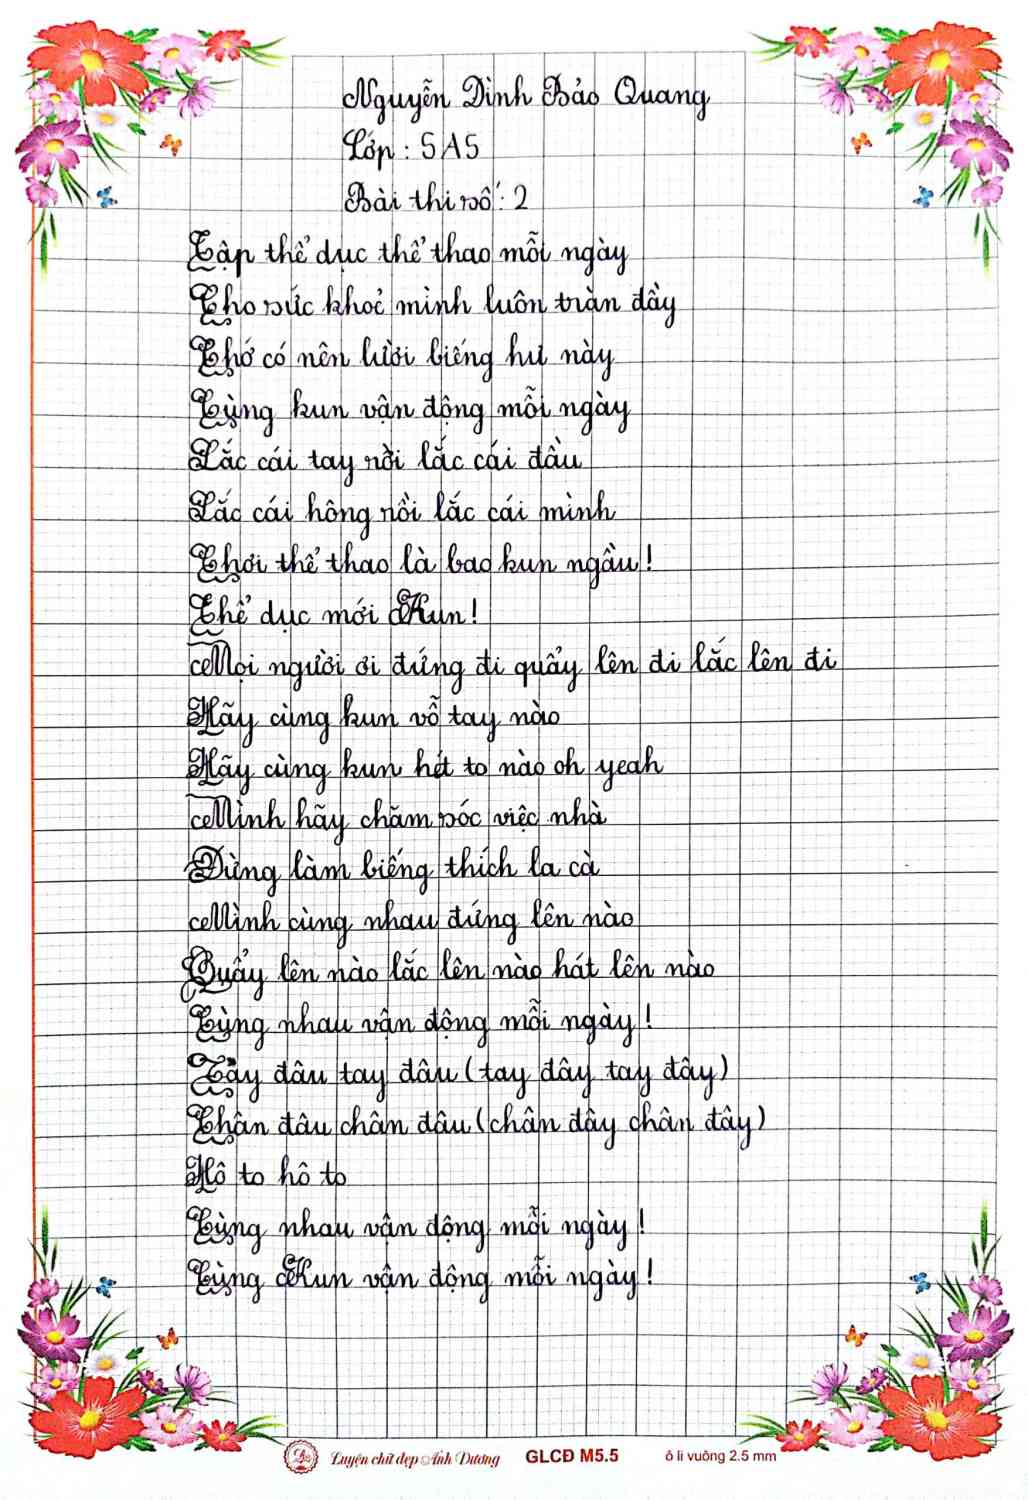 Nguyễn Đình Bảo Quang
Lớp : 5A5
Bài thi số : 2
Tập thể dục thể thao mỗi ngày
Cho sức khoẻ mình luôn tràn đầy
Chớ có nên lười biếng hư này
Cùng kun vận động mỗi ngày
Lắc cái tay rồi lắc cái đầu
Lắc cái hông rồi lắc cái mình
Chơi thể thao là bao kun ngầu !
Thể dục mới Kun !
Mọi người ơi đứng đi quẩy lên đi lắc lên đi
Hãy cùng kun vỗ tay nào
Hãy cùng kun hét to nào oh yeah
Mình hãy chăm sóc việc nhà
Đừng làm biếng thích la cà
Mình cùng nhau đứng lên nào
Quẩy lên nào lắc lên nào hát lên nào
Cùng nhau vận động mỗi ngày !
Tay đâu tay đâu ( tay đây tay đây )
Chân đâu chân đâu ( chân đây chân đây )
Hô to hô to
Cùng nhau vận động mỗi ngày !
Cùng Kun vận động mỗi ngày !
Luyện chữ đẹp Ánh Dương GLCĐ M5.5 ô li vuông 2.5 mm